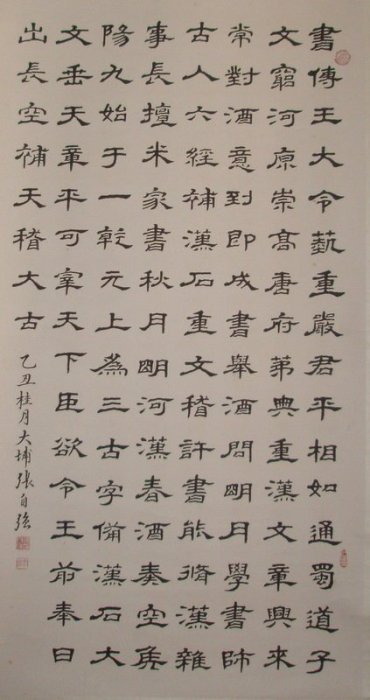 書傳王大令藝重嚴君平相如通蜀道子
文窮河原崇高唐府第典重漢文章興來
常對酒意到即成書舉酒問明月學書師
古人六經補漢石重文稽許書能脩漢雜
事長擅米家書秋月明河漢春酒奏空侯
陽九始于一乾元上為三古字備漢石大
文垂天章平可宰天下臣欲令王前奉日
出長空補天稽大古
乙丑桂月大埔張自強